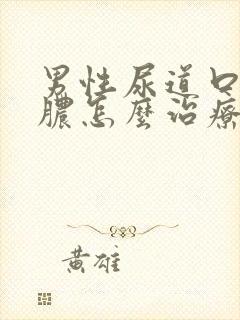 男性尿道口
膿怎麼治療
黃雄